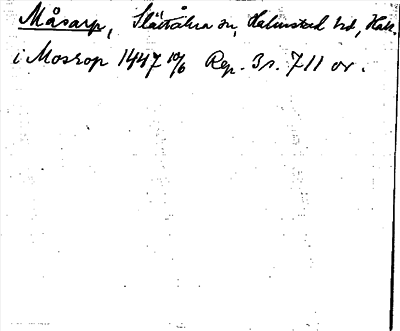 Måsarp, Slättåkra sn, Halmstad hd, Hall.
i Mosrop 1447 10/6 Rep. 3 s. 711 or.